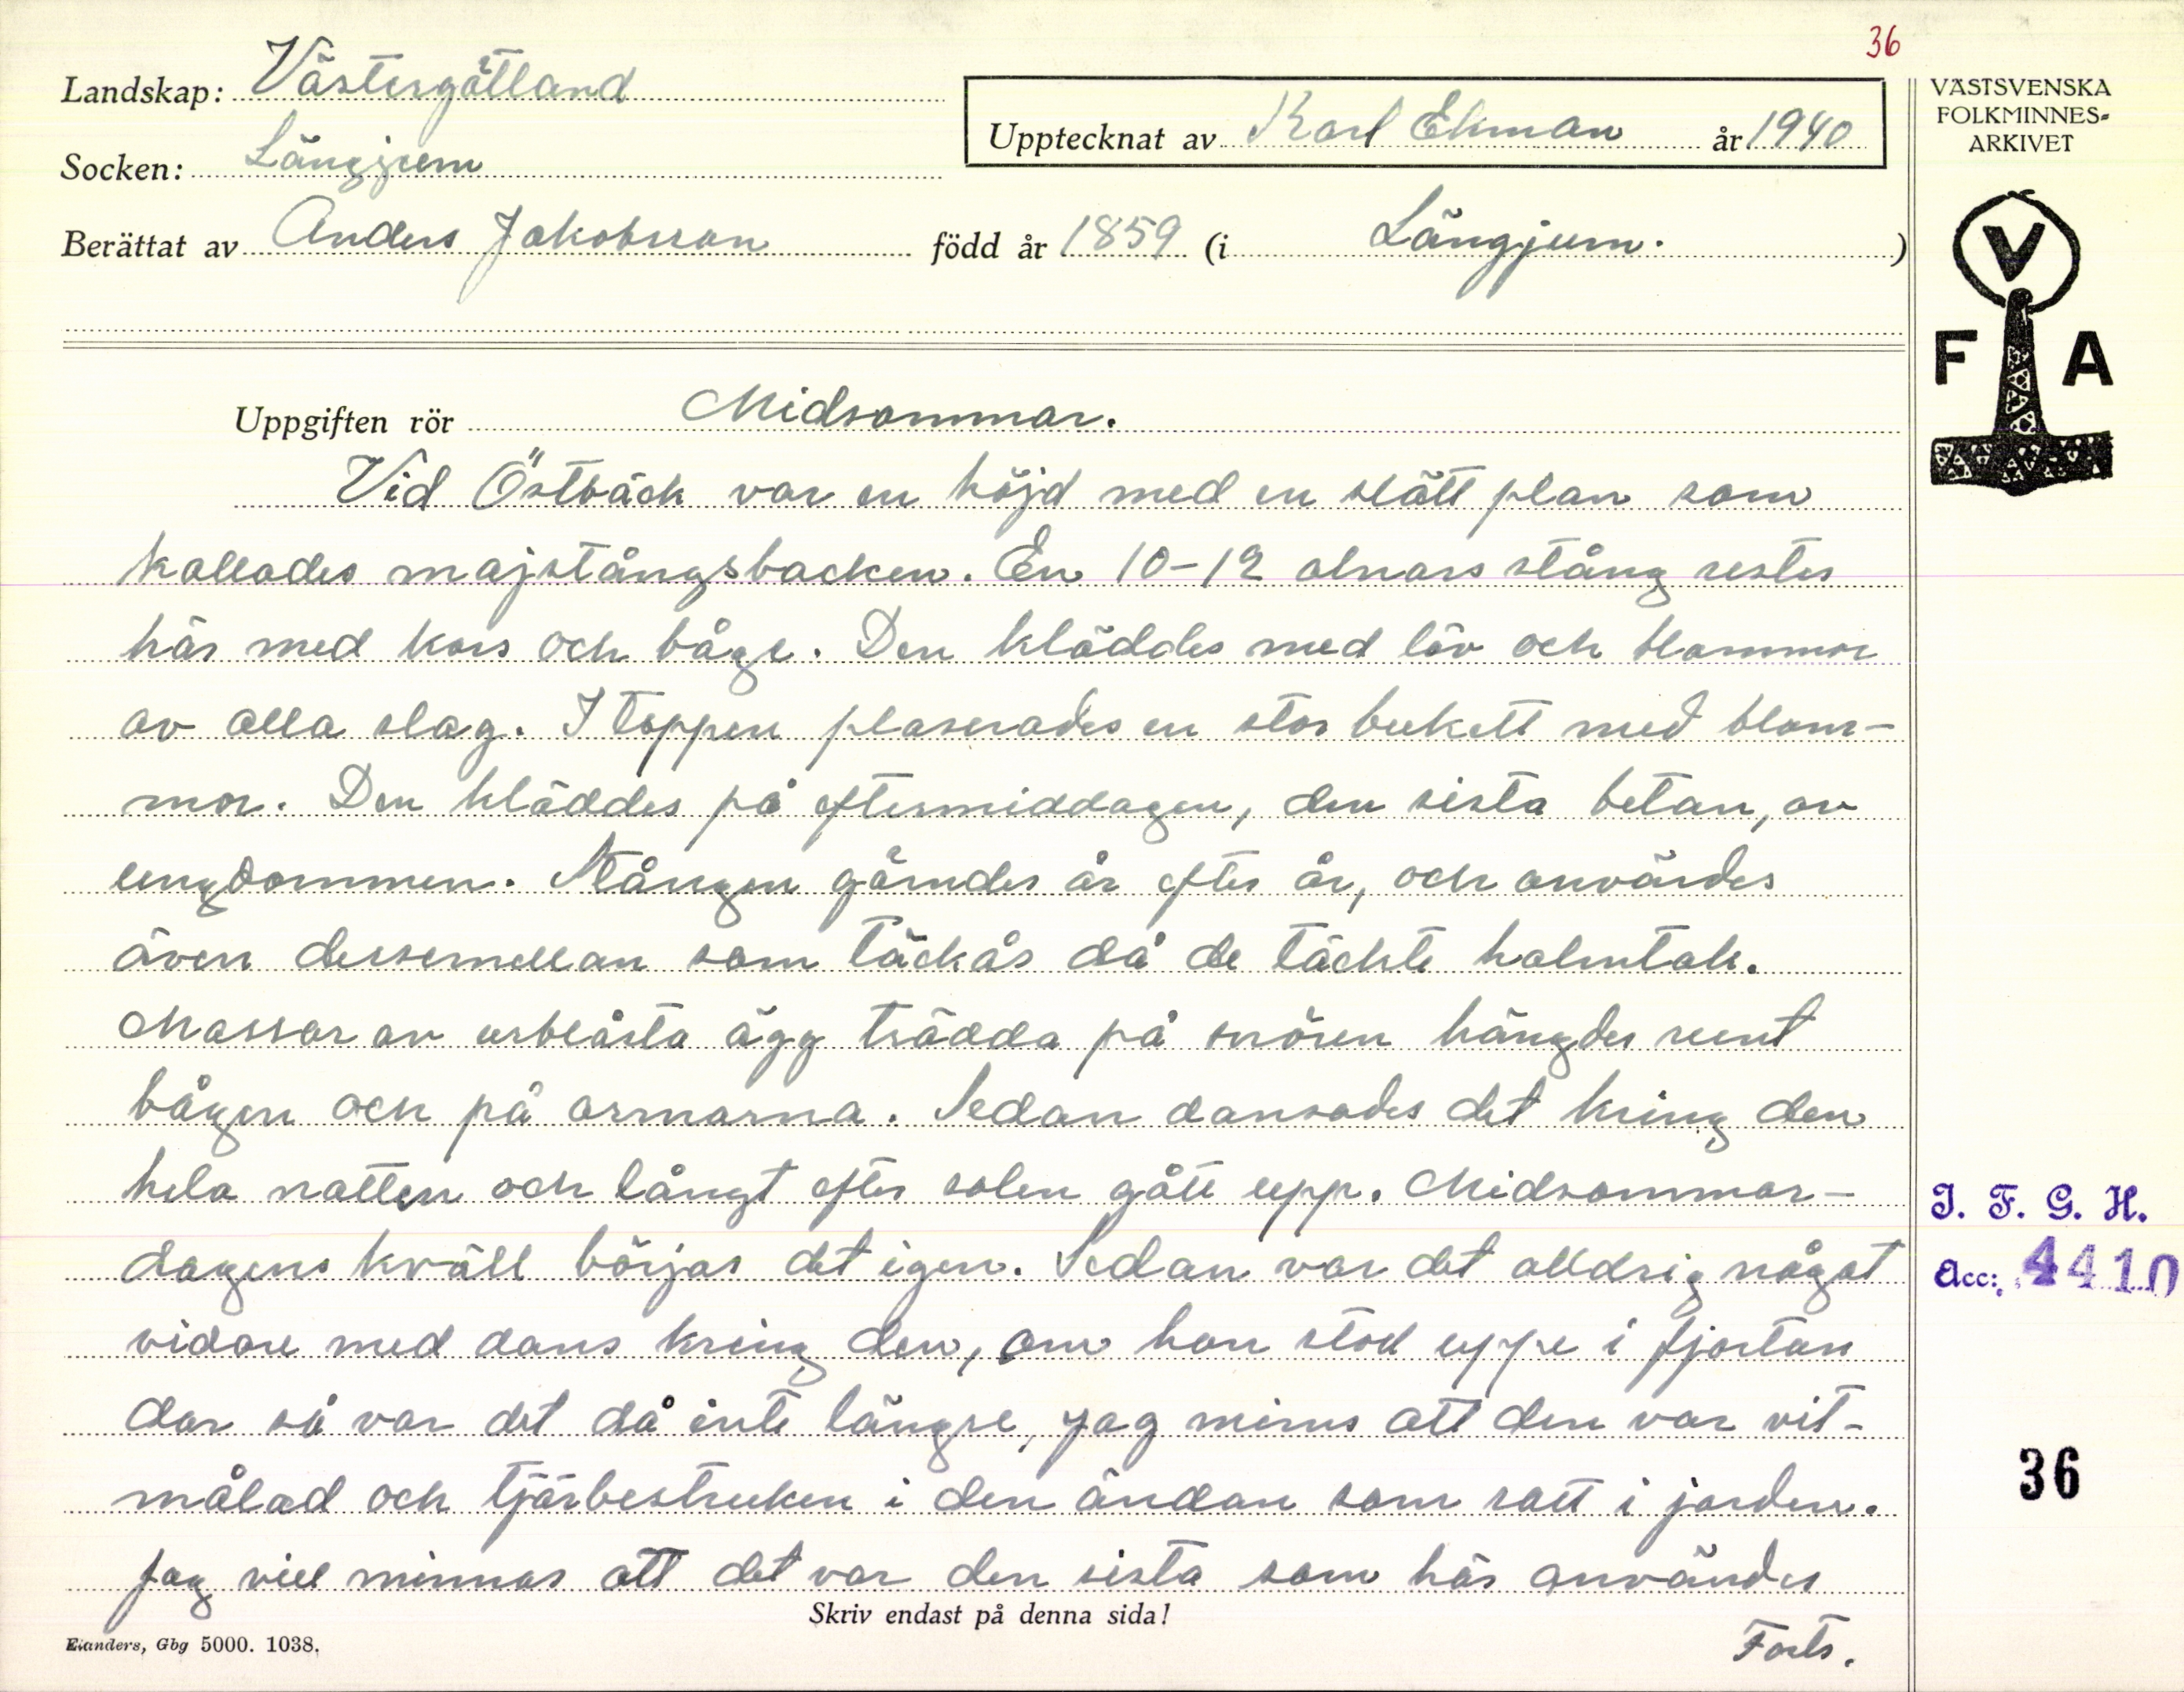 36
Landskap: Västergötland
Socken: Längjum
Upptecknat av Karl Ekman år 1940
Berättat av Anders Jakobsson född år 1859 (i Längjum. )
VÄSTSVENSKA
FOLKMINNES-
ARKIVET
V
F A
Uppgiften rör Midsommar.
Vid Östbäck var en höjd med en slätt plan som
kallades majstångsbacken. En 10-12 alnars stång restes
här med kors och båge. Den kläddes med löv och blommor
av alla slag. I toppen plaserades en stor bukett med blom-
mor. Den kläddes på eftermiddagen, den sista betan, av
ungdommen. Stången gömdes år efter år, och användes
även dessemellan som täckås då de täckte halmtak.
Massor av urblåsta ägg trädda på snören hängdes runt
bågen och på armarna. Sedan dansades det kring den
hela natten och långt efter solen gått upp. Midsommar-
dagens kväll börjas det igen. Sedan var det alldrig något
vidare med dans kring den, om han stod uppe i fjortan
dar så var det då inte längre, jag minns att den var vit-
målad och tjärbestruken i den ändan som satt i jorden.
Jag vill minnas att det var den sista som här användes
Forts.
Skriv endast på denna sida!
Elanders, Gbg 5000. 1038.
I. F. G. H.
Acc: 4410
36